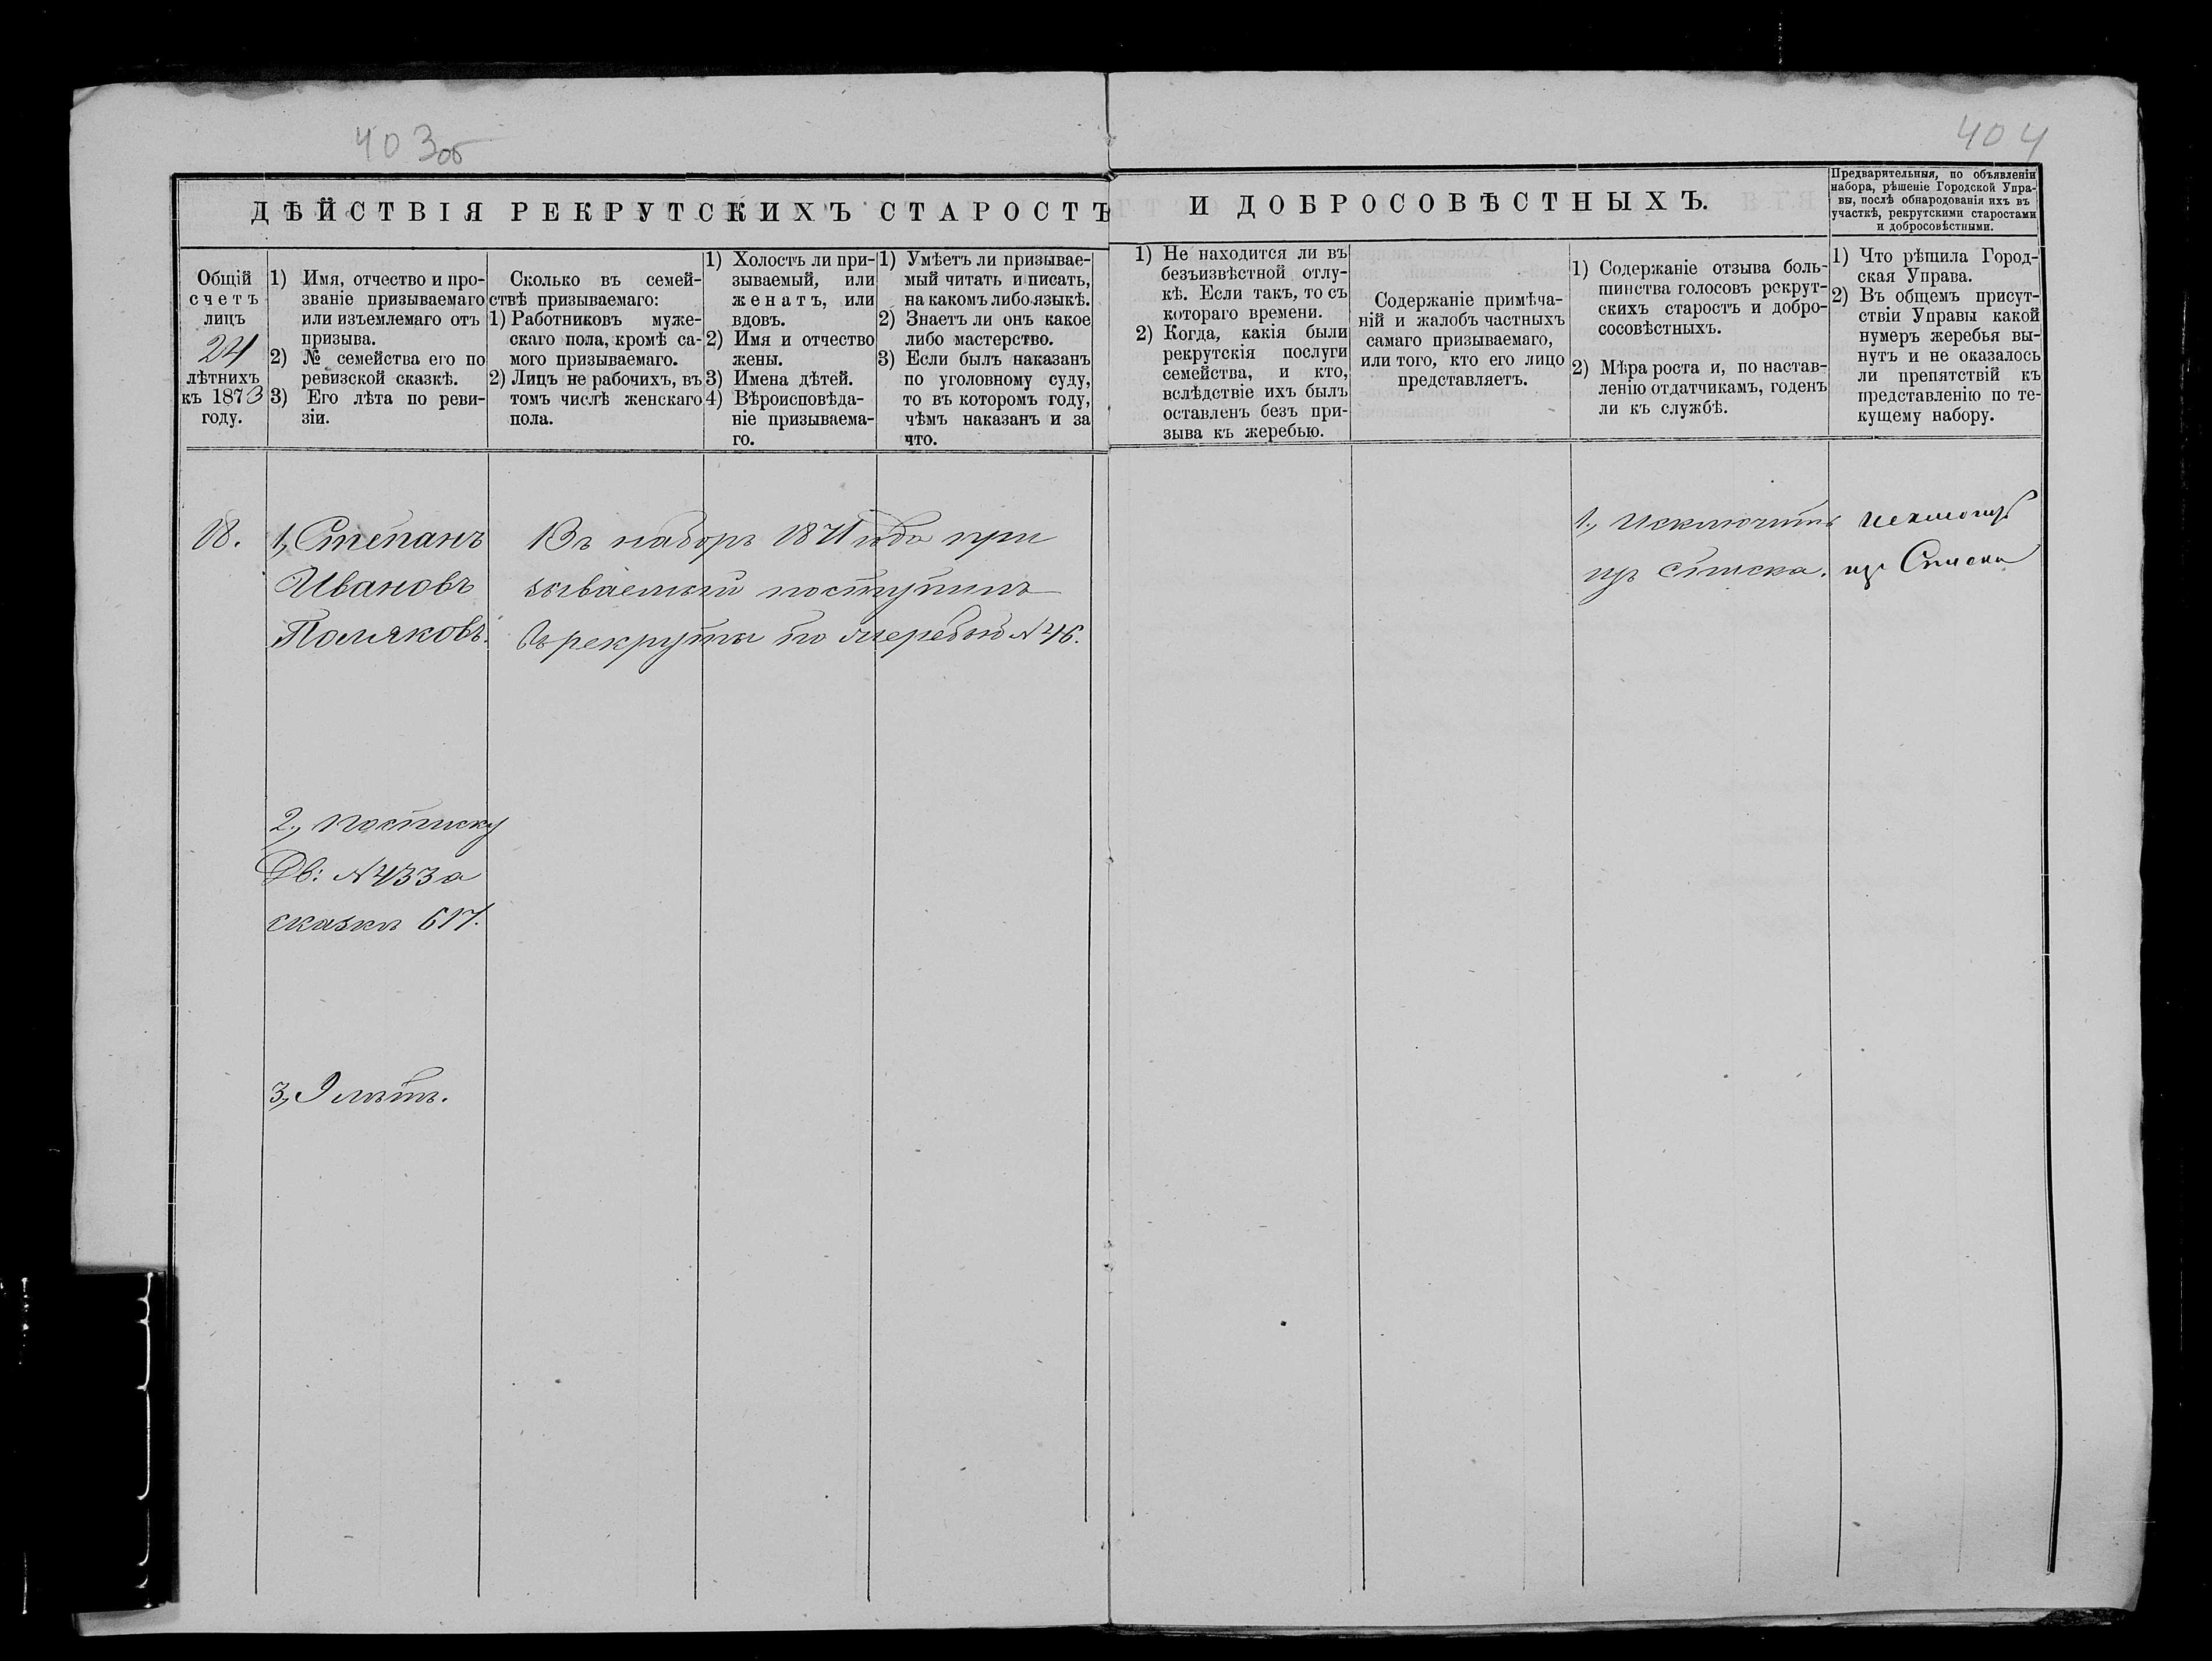 403об
404
ДѢЙСТВІЯ РЕКРУТСКИХЪ СТАРОСТЪ И ДОБРОСОВѢСТНЫХЪ.
Предварительныя, по объявленіи
набора, рѣшеніе Городской Упра-
вы, послѣ обнародованія ихъ въ
участкѣ, рекрутскими старостами
и добросовѣстными.
Общій
счетъ
лицъ
24
лѣтнихъ
къ 1873
году.
1) Имя, отчество и про-
званіе призываемаго
или изъемлемаго отъ
призыва.
2) № семейства его по
ревизской сказкѣ.
3) Его лѣта по реви-
зіи.
Сколько въ семей-
ствѣ призываемаго:
1) Работниковъ муже-
скаго пола, кромѣ са-
мого призываемаго.
2) Лицъ не рабочихъ, въ
томъ числѣ женскаго
пола.
1) Холостъ ли при-
зываемый, или
женатъ, или
вдовъ.
2) Имя и отчество
жены.
3) Имена дѣтей.
4) Вѣроисповѣда-
ніе призываема-
го.
1) Умѣетъ ли призывае-
мый читать и писать,
на какомъ либо языкѣ.
2) Знаетъ ли онъ какое
либо мастерство.
3) Если былъ наказанъ
по уголовному суду,
то въ которомъ году,
чѣмъ наказанъ и за
что.
1) Не находится ли въ
безъизвѣстной отлу-
кѣ. Если такъ, то съ
котораго времени.
2) Когда, какія были
рекрутскія послуги
семейства, и кто,
вслѣдствіе ихъ былъ
оставленъ безъ при-
зыва къ жеребью.
Содержаніе примѣча-
ній и жалобъ частныхъ
самаго призываемаго,
или того, кто его лицо
представляетъ.
1) Содержаніе отзыва боль-
шинства голосовъ рекрут-
скихъ старостъ и добро-
сосовѣстныхъ.
2) Мѣра роста и, по настав-
ленію отдатчикамъ, годенъ
ли къ службѣ.
1) Что рѣшила Город-
ская Управа.
2) Въ общемъ присут-
ствіи Управы какой
нумеръ жеребья вы-
нутъ и не оказалось
ли препятствій къ
представленію по те-
кущему набору.
18.
1, Степанъ
Ивановъ
Поляковъ.
2, по списку
Дв: №433 а
сказкѣ 617.
3, 9 лѣтъ.
Въ наборъ 1871 года при
зываемый поступилъ
въ рекруты по жеребью №46.
1, Исключить
изъ списка.
изъ Списка